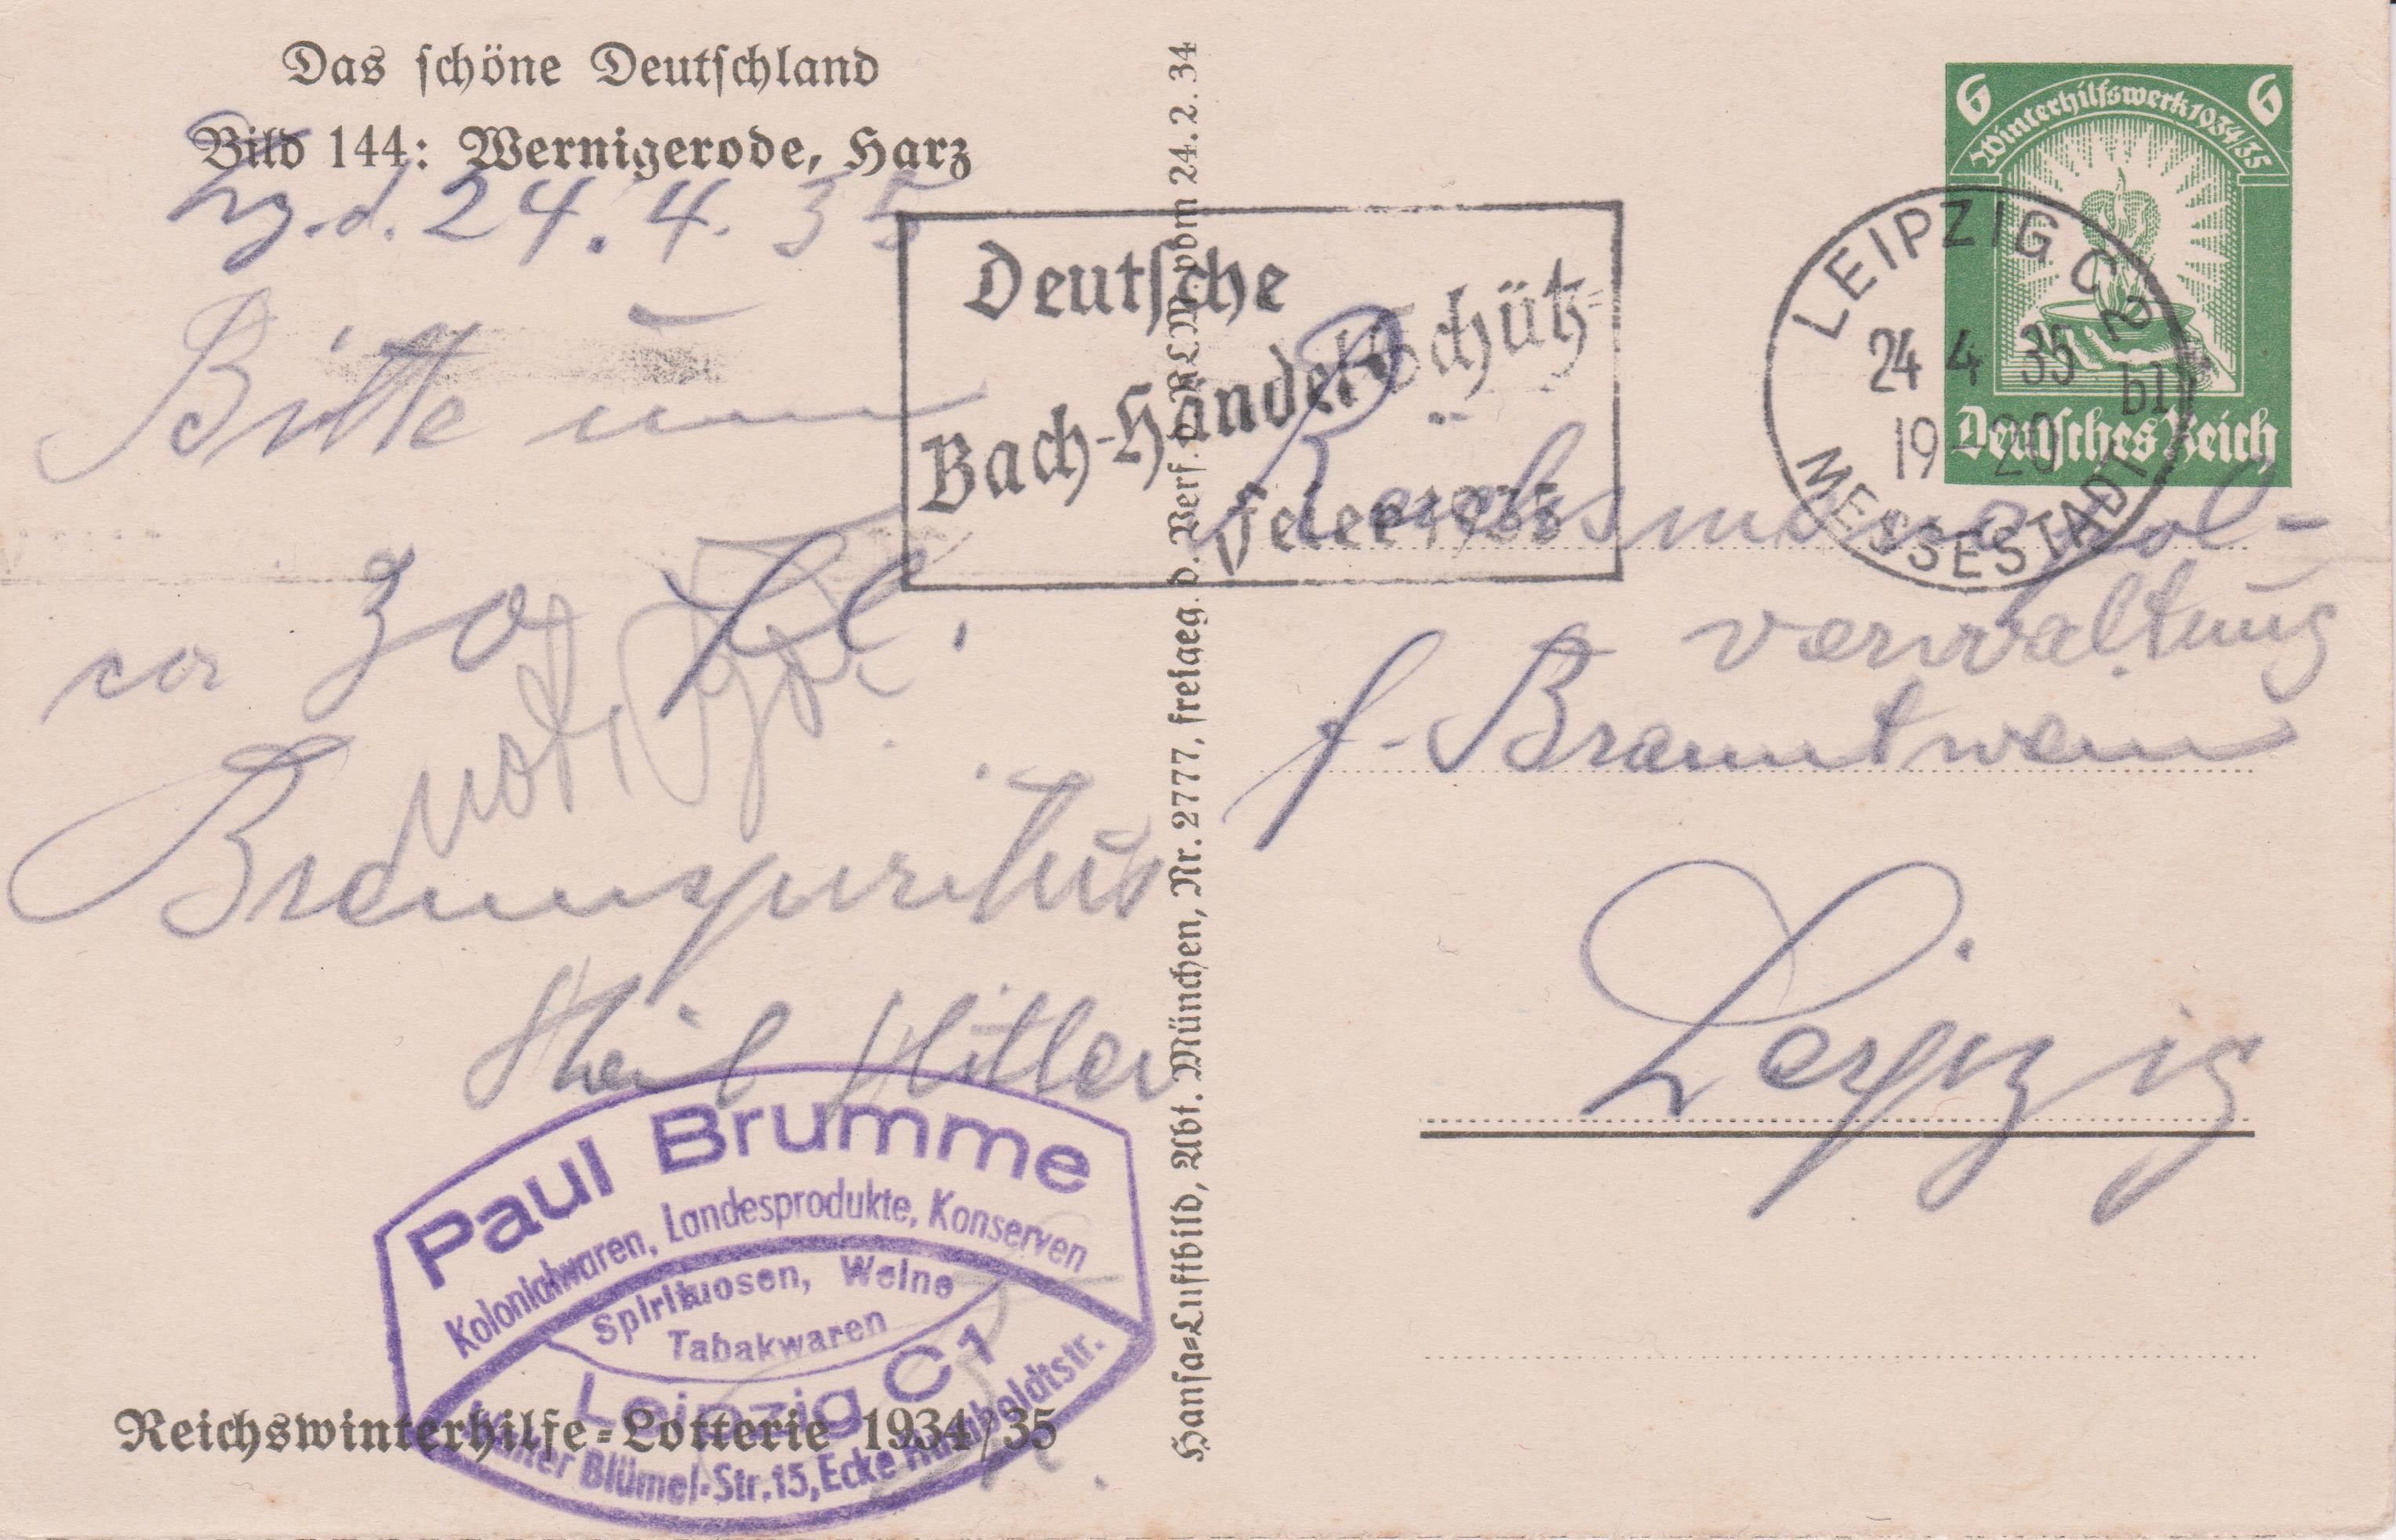 Das schöne Deutschland
Bild 144: Wernigerode, Harz
Lzg. d. 24. 4. 35
Bitte um
ca 30 Fl.
Brennspiritus
Heil Hitler
Paul Brumme
Kolonialwaren, Landesprodukte, Konserven
Spirituosen, Weine
Tabakwaren
Leipzig C1
Walter Blümel-Str. 15, Ecke Humboldtstr.
Reichswinterhilfe-Lotterie 1934/35
Hansa-Luftbild, Abt. München, Nr. 2777, freigeg. d. Verf. d. RLM. vom 24. 2. 34
Deutsche
Bach-Händel-Schütz-
Feier 1935
LEIPZIG C 2
24 4 35
19-20
bl
MESSESTADT
6 6
Winterhilfswerk 1934/35
Deutsches Reich
Reichsmonopol-
verwaltung
f. Branntwein
Leipzig